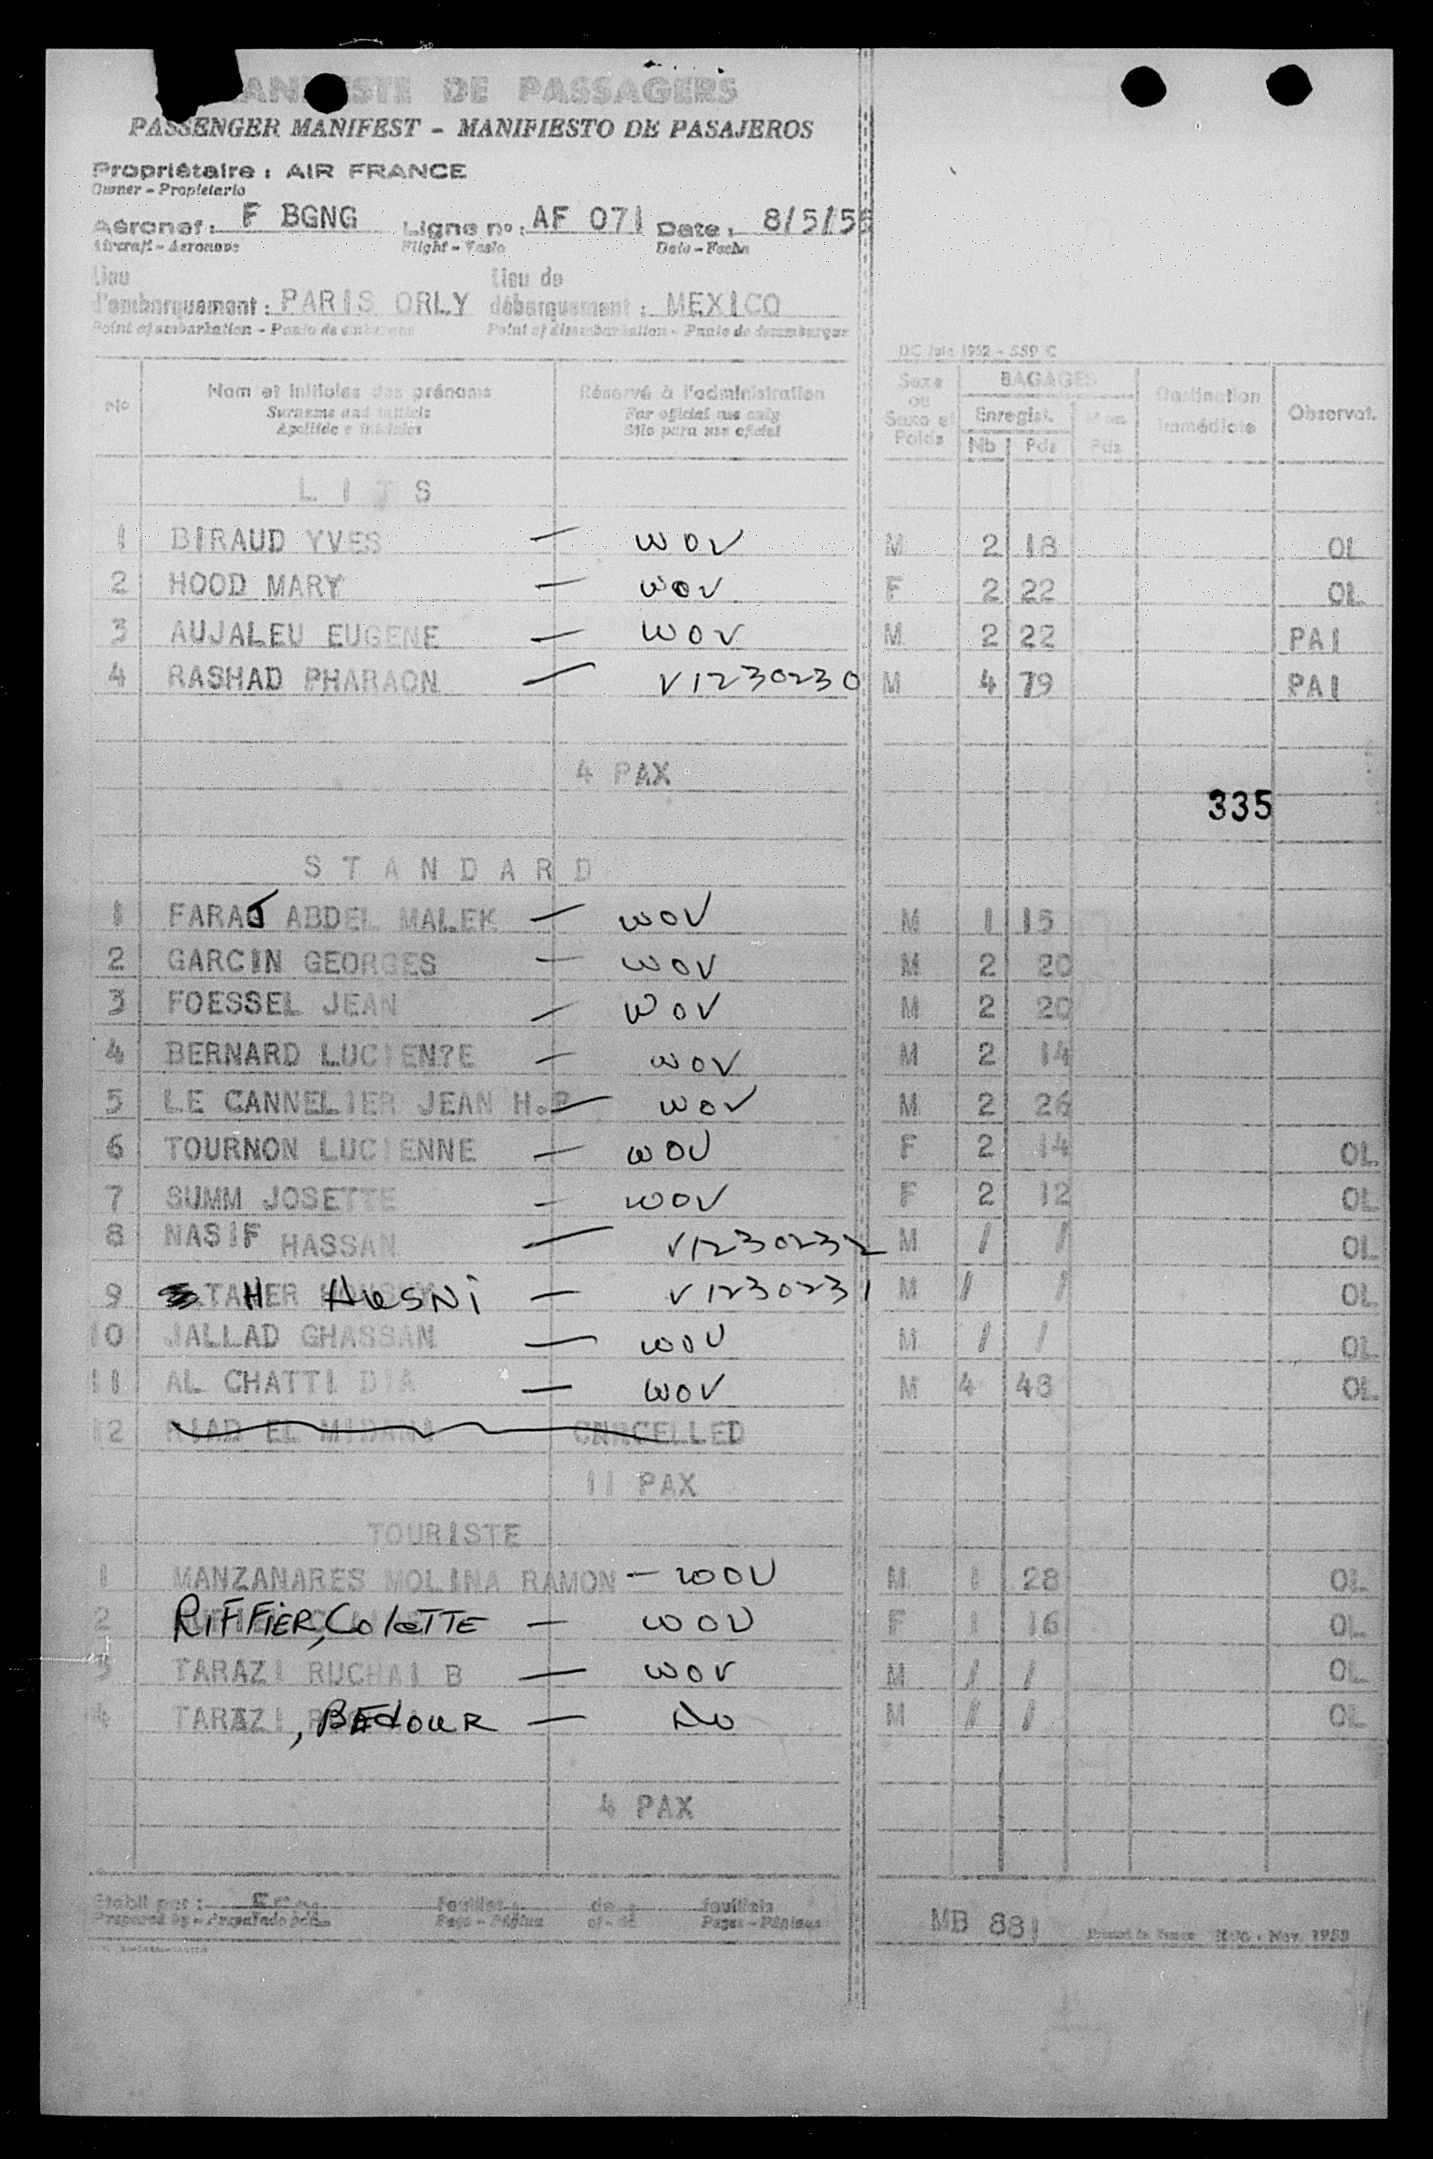 MANIFESTE DE PASSAGERS
PASSENGER MANIFEST - MANIFIESTO DE PASAJEROS
Propriétaire : AIR FRANCE
Owner - Propietario
Aéronef : F BGNG Ligne n° : AF 071 Date : 8/5/56
Aircraft - Aeronave Flight - Vuelo Date - Fecha
Lieu Lieu de
d'embarquement : PARIS ORLY débarquement : MEXICO
Point of embarkation - Punto de embarque Point of disembarkation - Punto de desembarque
DC Juin 1952 - 559 C
No Nom et initiales des prénoms Réservé à l'administration Sexe ou Sexe et Poids BAGAGES Enregist. Nb Pds Pds Destination Immédiate Observat.
Surname and initials For oficial use only
Apellido e iniciales Sólo para uso oficial
L I T S
1 BIRAUD YVES — WOV M 2 18 OL
2 HOOD MARY — WOV F 2 22 OL
3 AUJALEU EUGENE — WOV M 2 22 PAI
4 RASHAD PHARAON — V1230230 M 4 79 PAI
4 PAX
335
S T A N D A R D
1 FARAJ ABDEL MALEK — WOV M 1 15
2 GARCIN GEORGES — WOV M 2 20
3 FOESSEL JEAN — WOV M 2 20
4 BERNARD LUCIEN?E — WOV M 2 14
5 LE CANNELIER JEAN H.P — WOV M 2 26
6 TOURNON LUCIENNE — WOV F 2 14 OL
7 SUMM JOSETTE — WOV F 2 12 OL
8 NASIF HASSAN — V1230232 M / / OL
9 TAHER HUSNI — V1230231 M / / OL
10 JALLAD GHASSAN — WOV M / / OL
11 AL CHATTI DIA — WOV M 4 48 OL
12 RIAD EL MIDANI CANCELLED
11 PAX
TOURISTE
1 MANZANARES MOLINA RAMON — WOV M 1 28 OL
2 RIFFIER, COleTTE — WOV F 1 16 OL
3 TARAZI RUCHAI B — WOV M / / OL
4 TARAZI, BEdOUR — NO M / / OL
4 PAX
Etabli par : Feuillet : de : feuillets
Prepared by - Preparado por Page - Página of - de Pages - Páginas
MB 881 Printed in France Nov. 1953